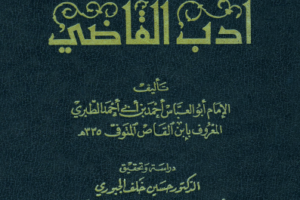 أدب القاضي
تأليف
الإمام أبو العباس أحمد بن أبي أحمد الطبري
المعروف بابن القاص المتوفى ٣٣٥هـ
دراسة وتحقيق
الدكتور حسين خلف الجبوري